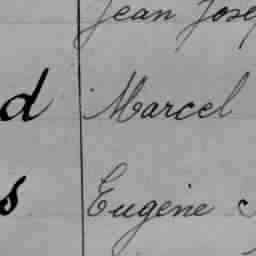 Jean Jose
d Marcel
s Eugène